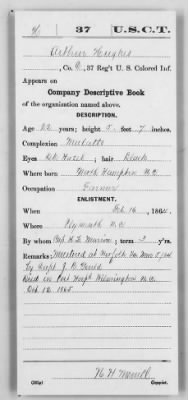 H | 37 | U.S.C.T.
Arthur Hughes
, Co. , 37 Reg't U. S. Colored Inf.
Appears on
Company Descriptive Book
of the organization named above.
DESCRIPTION.
Age 22 years; height 5 feet 7 inches.
Complexion Mulatto
Eyes Hazel; hair Black
Where born North Hampton N.C.
Occupation Farmer
ENLISTMENT.
When Feb 16, 1864.
Where Plymouth N.C.
By whom Capt H. L. ; term 3 y'rs.
Remarks: Mustered at Norfolk Va
by Capt J. B.
Died in Post Hospt Wilmington N.C.
Oct 12, 1865
Copyist.